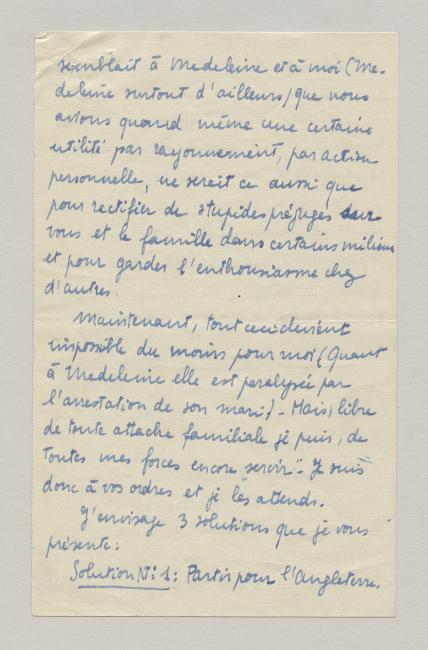 semblait à Medeleine et à moi (Me-
deleine surtout d'ailleurs) que nous
avions quand même une certaine
utilité par rayonnement, par action
personnelle, ne serait ce aussi que
pour rectifier de stupides préjugés sur
vous et le famille dans certains milieux
et pour garder l'enthousiasme chez
d'autres.
Maintenant, tout ceci devient
impossible du moins pour moi (Quant
à Medeleine elle est paralysée par
l'arrestation de son mari) - Mais, libre
de toute attache familiale je puis, de
toutes mes forces encore servir - Je suis
donc à vos ordres et je les attends.
J'envisage 3 solutions que je vous
présente :
Solution N° 1 : Partir pour l'Angleterre.